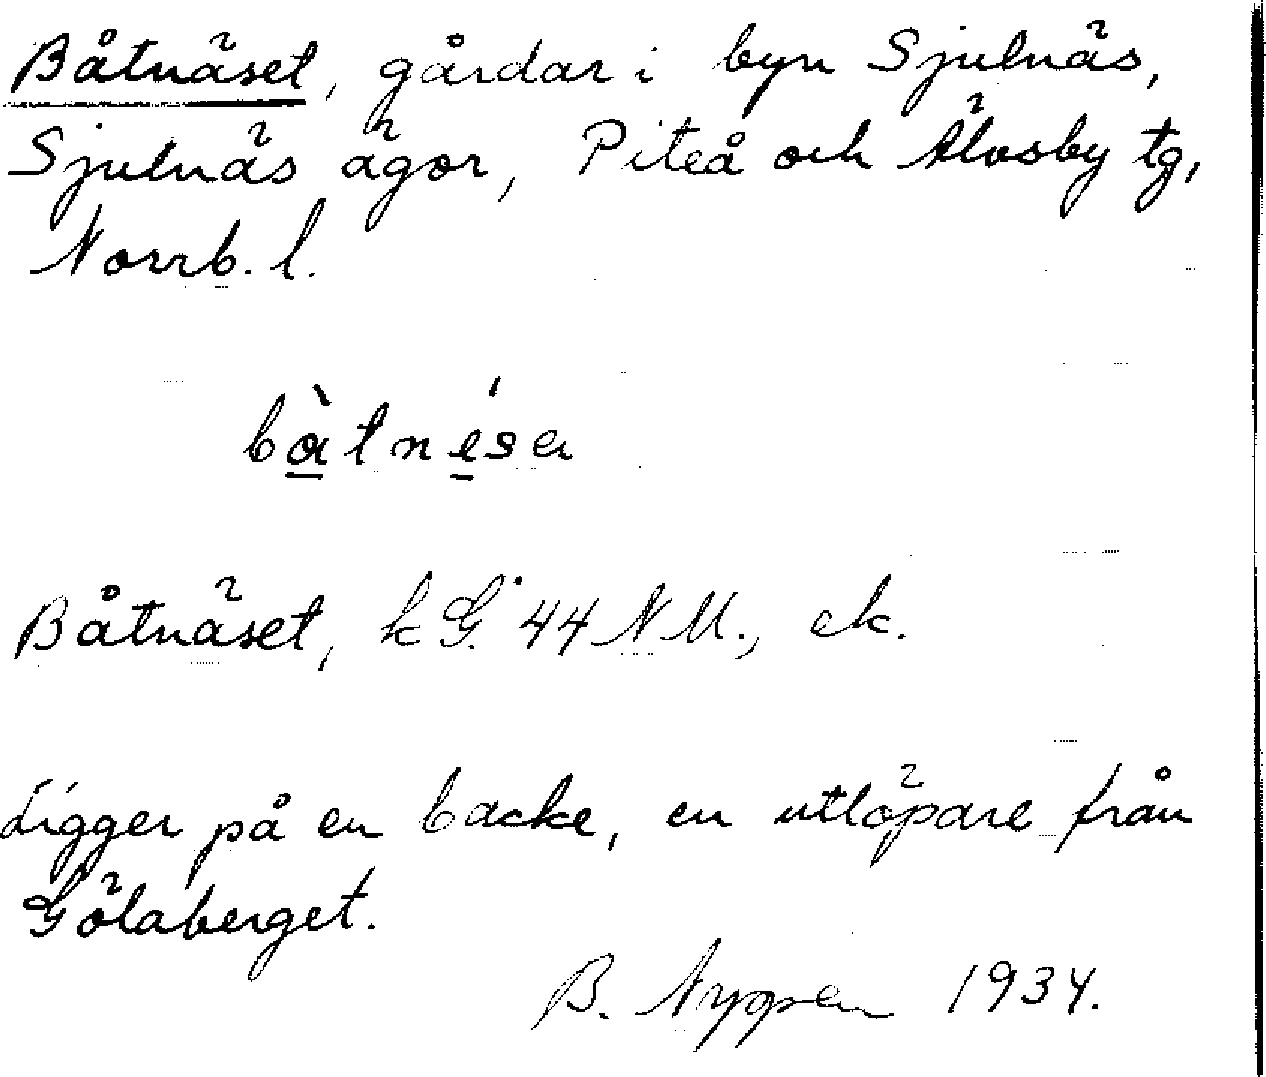 Båtnäset, gårdar i byn Sjulnäs,
Sjulnäs ägor, Piteå och Älvsby tg,
Norrb. l.
bàtnésa
Båtnäset, kG. 44 NM., ek.
Ligger på en backe, en utlöpare från
Gölaberget.
B. 1934.